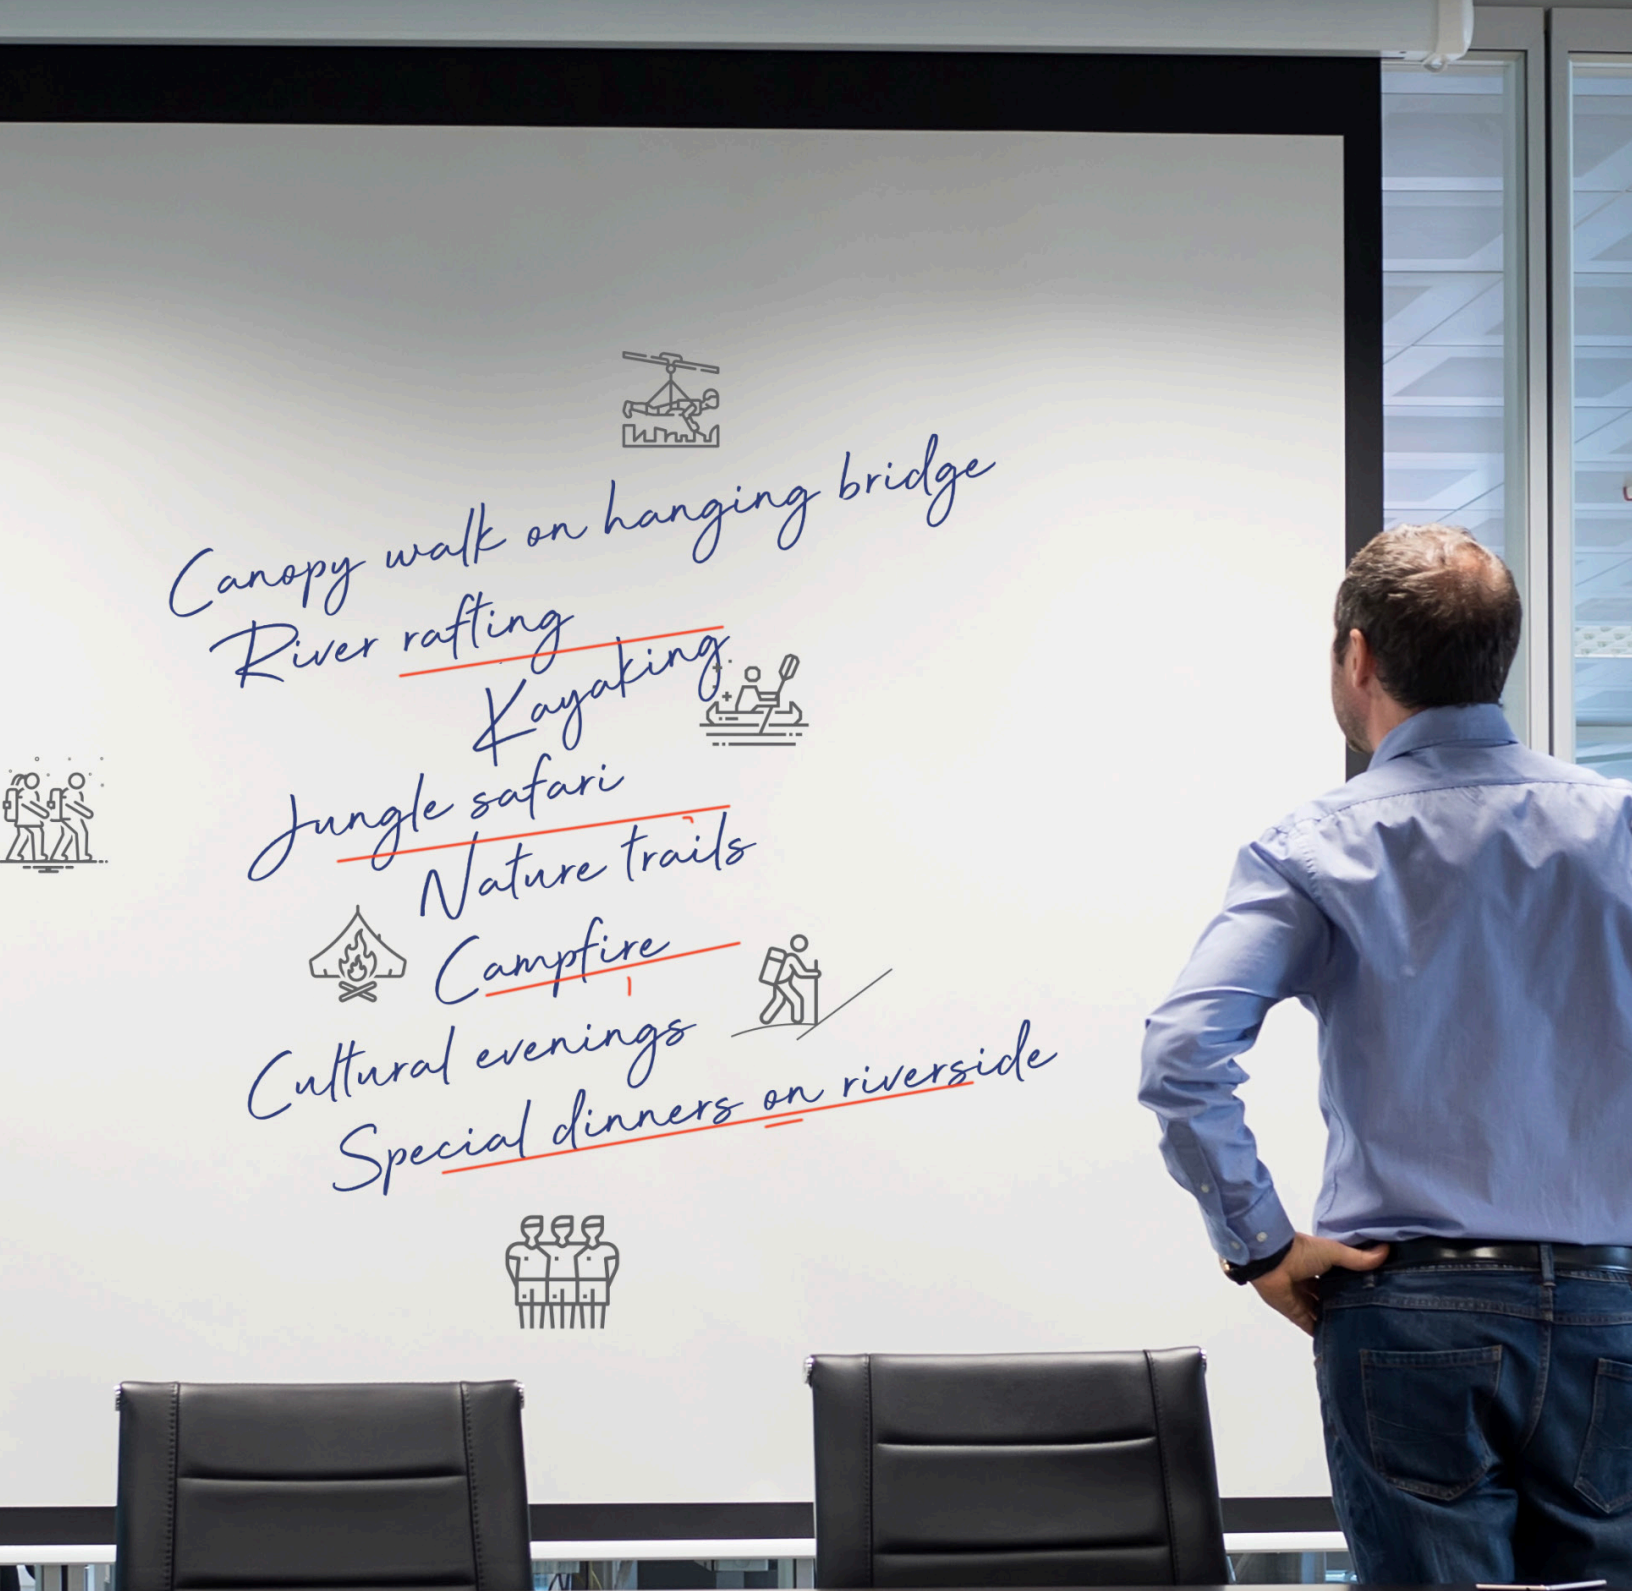 Canopy walk on hanging bridge
River rafting
Kayaking
Jungle safari
Nature trails
Campfire
Cultural evenings
Special dinners on riverside